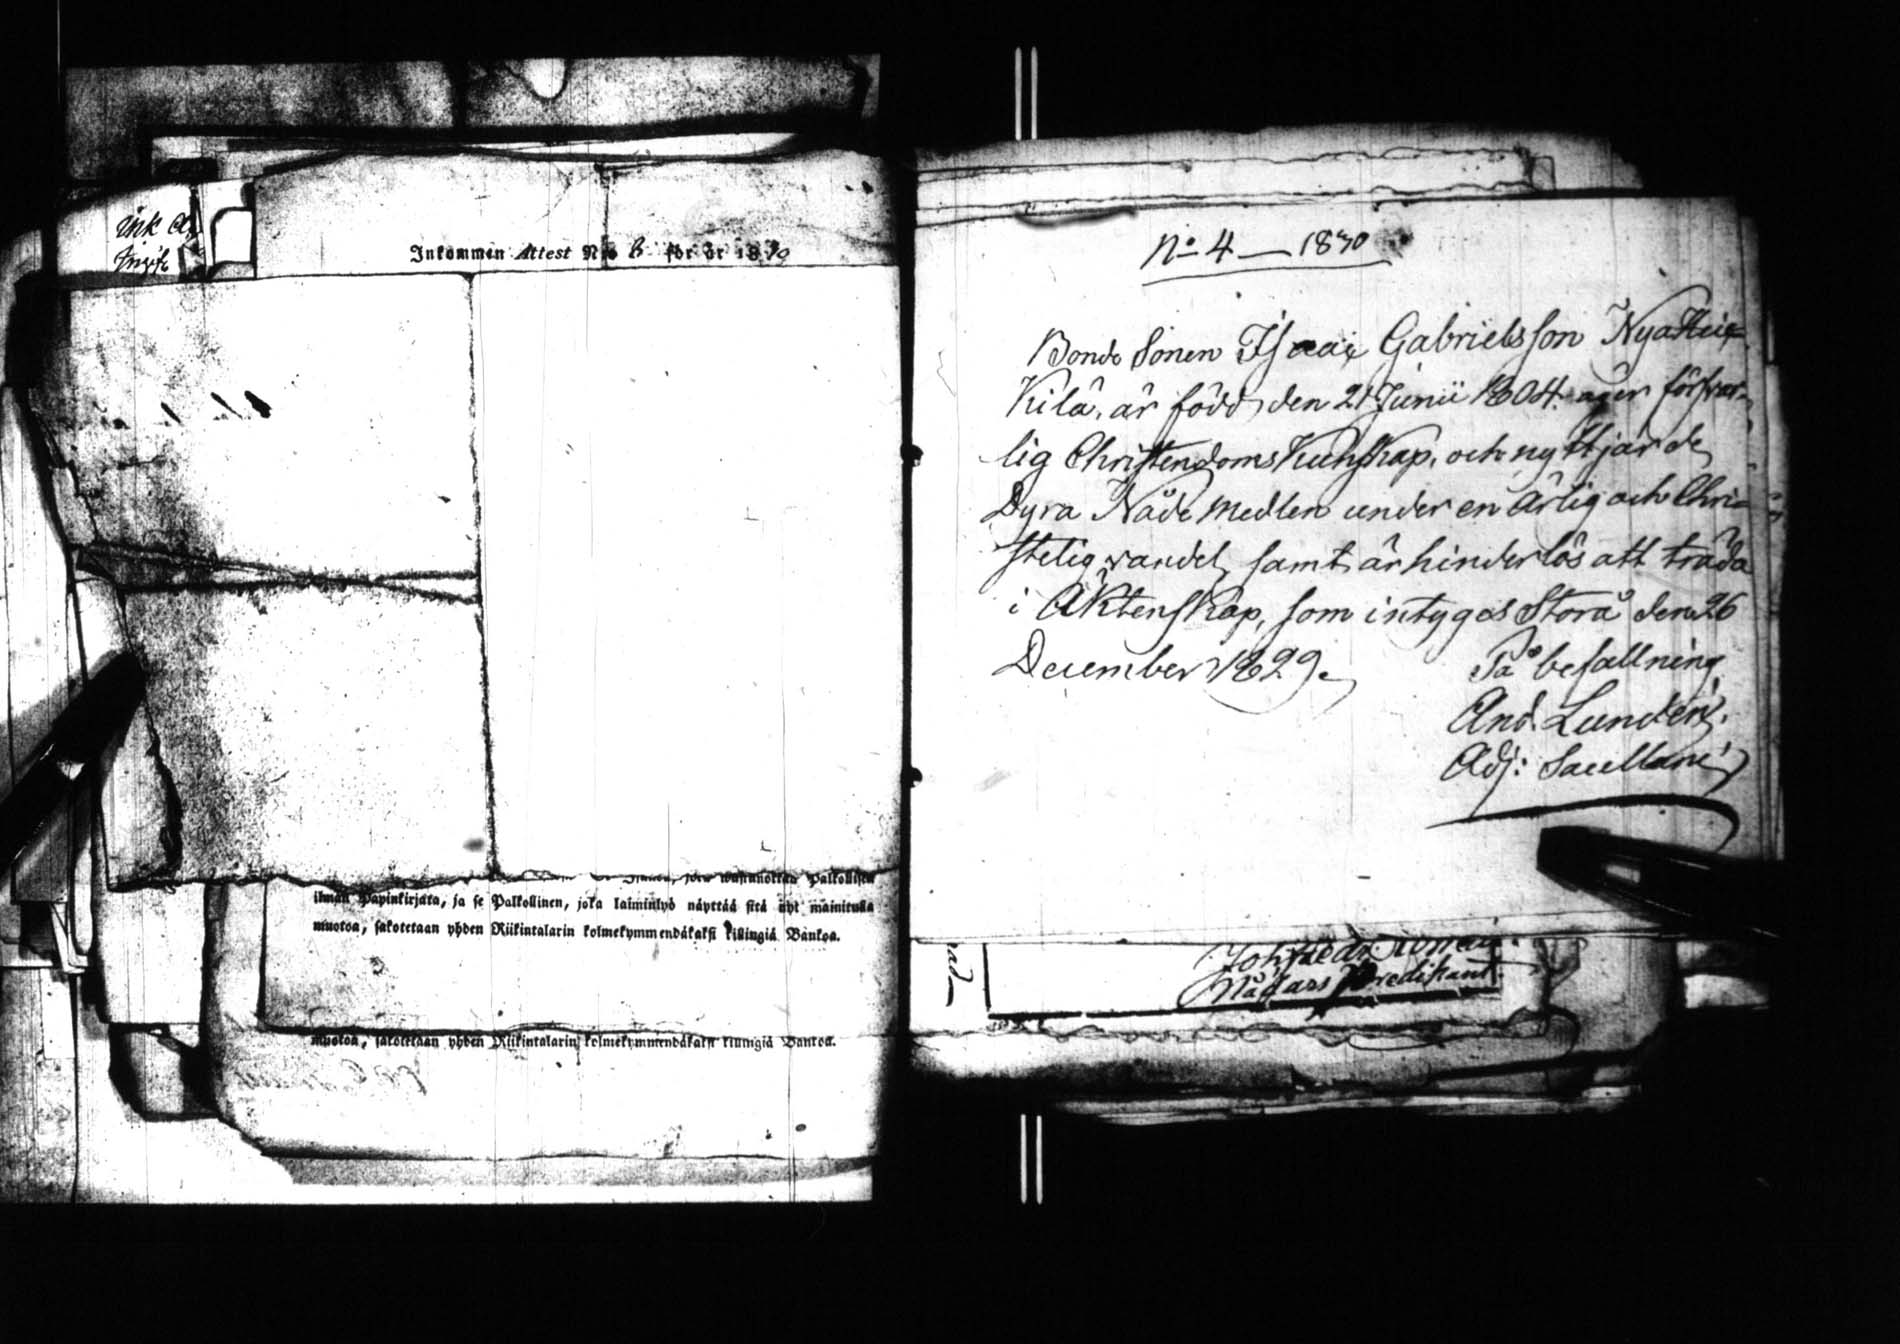 Ink
Inkommen Attest N:o för år 1830
ilman Papinkirjata, ja se Palkollinen, joka laiminlyö näyttää sitä nyt mainitulla
muotoa, sakotetaan yhden Riikintalarin kolmekymmendäkaksi killingiä Bankoa.
muotoa, sakotetaan yhden Riikintalarin kolmekymmendäkaksi killingiä Bankoa.
No 4 — 1830
Bonde Sonen Isaac Gabrielsson Nya
Kilä, är född den 21 Junii 1804. äger försvar-
lig Christendoms Kunskap, och nyttjar de
Dyra Nåde Medlen under en ärlig och Chri-
stelig vandel, samt är hinderlös att träda
i Äktenskap, som intygas Storå den 26
December 1829.
På befallning
And. Lundén.
Adj:
Predikant.